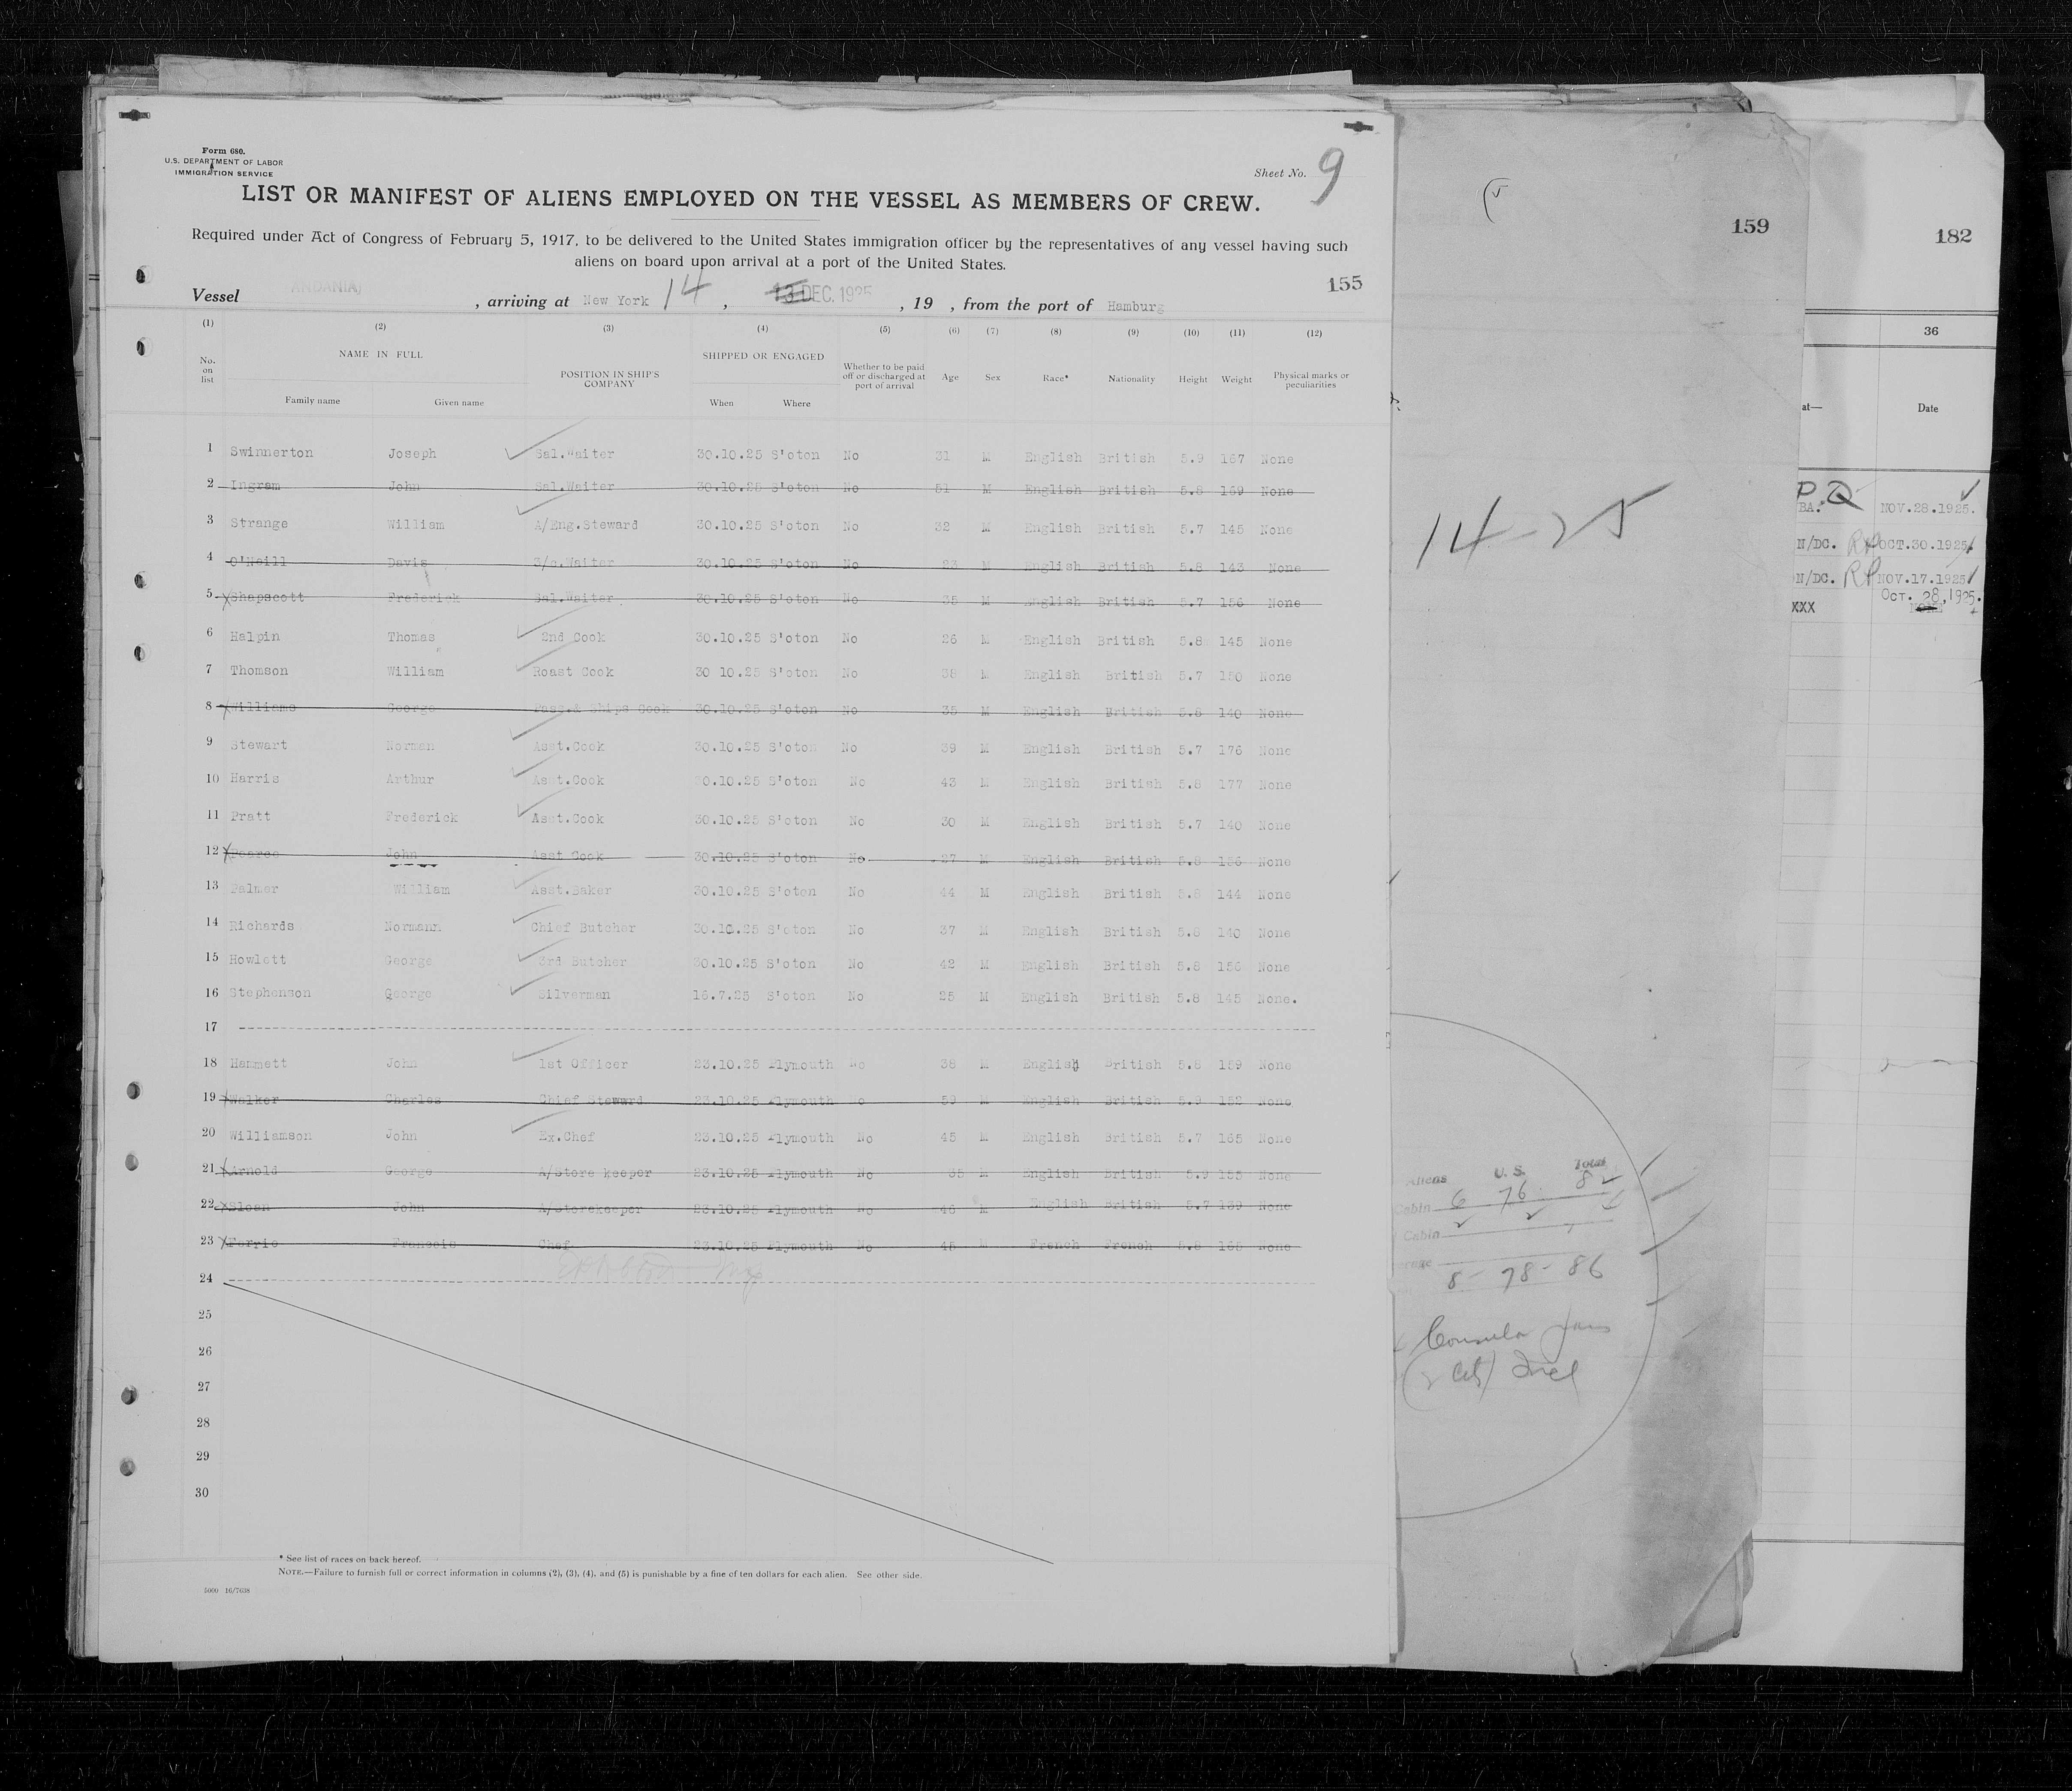 Form 680.
U.S. DEPARTMENT OF LABOR
IMMIGRATION SERVICE
Sheet No. 9
LIST OR MANIFEST OF ALIENS EMPLOYED ON THE VESSEL AS MEMBERS OF CREW.
Required under Act of Congress of February 5, 1917, to be delivered to the United States immigration officer by the representatives of any vessel having such
aliens on board upon arrival at a port of the United States.
155
Vessel ANDANIA, arriving at New York 14, 13 DEC. 1925, 19 , from the port of Hamburg
(1) (2) (3) (4) (5) (6) (7) (8) (9) (10) (11) (12)
No. on list NAME IN FULL Family name Given name POSITION IN SHIP'S COMPANY SHIPPED OR ENGAGED When Where Whether to be paid off or discharged at port of arrival Age Sex Race* Nationality Height Weight Physical marks or peculiarities
1 Swinnerton Joseph Sal.Waiter 30.10.25 S'oton No 31 M English British 5.9 167 None
2 Ingram John Sal.Waiter 30.10.25 S'oton No 51 M English British 5.8 169 None
3 Strange William A/Eng.Steward 30.10.25 S'oton No 32 M English British 5.7 145 None
4 O'Neill Davis 3/c.Waiter 30.10.25 S'oton No 23 M English British 5.8 143 None
5 Shapscott Frederick Sal.Waiter 30.10.25 S'oton No 35 M English British 5.7 156 None
6 Halpin Thomas 2nd Cook 30.10.25 S'oton No 26 M English British 5.8 145 None
7 Thomson William Roast Cook 30 10.25 S'oton No 38 M English British 5.7 150 None
8 Williams George Pass.& Ships Cook 30.10.25 S'oton No 35 M English British 5.8 140 None
9 Stewart Norman Asst.Cook 30.10.25 S'oton No 39 M English British 5.7 176 None
10 Harris Arthur Asst.Cook 30.10.25 S'oton No 43 M English British 5.8 177 None
11 Pratt Frederick Asst.Cook 30.10.25 S'oton No 30 M English British 5.7 140 None
12 Pearce John Asst Cook 30.10.25 S'oton No. 27 M English British 5.8 156 None
13 Palmer William Asst.Baker 30.10.25 S'oton No 44 M English British 5.8 144 None
14 Richards Normann Chief Butcher 30.10.25 S'oton No 37 M English British 5.8 140 None
15 Howlett George 3rd Butcher 30.10.25 S'oton No 42 M English British 5.8 156 None
16 Stephenson George Silverman 16.7.25 S'oton No 25 M English British 5.8 145 None.
17
18 Hammett John 1st Officer 23.10.25 Plymouth No 38 M English British 5.8 159 None
19 Walker Charles Chief Steward 23.10.25 Plymouth No 59 M English British 5.9 152 None
20 Williamson John Ex.Chef 23.10.25 Plymouth No 45 M English British 5.7 165 None
21 Arnold George A/Store keeper 23.10.25 Plymouth No 35 M English British 5.9 155 None
22 Sloan John A/Storekeeper 23.10.25 Plymouth No 46 M English British 5.7 139 None
23 Ferrie Francois Chef 23.10.25 Plymouth No 45 M French French 5.8 165 None
24
25
26
27
28
29
30
* See list of races on back hereof.
NOTE.—Failure to furnish full or correct information in columns (2), (3), (4), and (5) is punishable by a fine of ten dollars for each alien. See other side.
5000 16/7638
159
14-25
Aliens U.S. Total
Cabin 6 76 82
Cabin
8 - 78 - 86
182
36
at— Date
P.Q
BA. NOV.28.1925.
N/DC. RP OCT.30.1925
N/DC. RP NOV.17.1925
XXX OCT. 28, 1925.